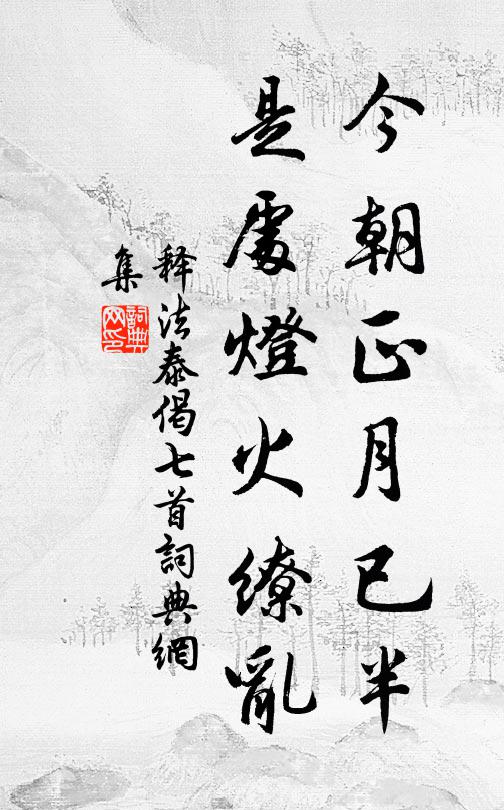 今朝正月已半
是處燈火繚亂
释法泰偈七首詞典網
集
詞典
网印